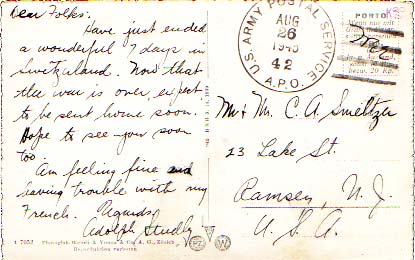 Dear Folks:
Have just ended
a wonderful 7 days in
Switzerland. Now that
the war is over, expect
to be sent home soon.
Hope to see you soon
too.
Am feeling fine and
having trouble with my
French. Regards,
Adolph Studly
U.S. ARMY POSTAL SERVICE
AUG
26
1945
42
A.P.O.
PORTO
Mr & Mr. C. A. Smeltzer
23 Lake St.
Ramsey, N. J.
U. S. A
1 7053 Photoglob-Wehrli & Vouga & Co. A. G., Zürich
Reproduction verboten
PZ W